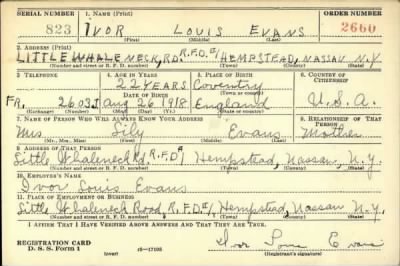 SERIAL NUMBER 1. NAME (Print) ORDER NUMBER
823 IVOR LOUIS EVANS 2660
(First) (Middle) (Last)
2. ADDRESS (Print)
LITTLE WHALENECK, RD. R.F.D.#1 HEMPSTEAD, NASSAU N.Y
(Number and street or R. F. D. number) (Town) (County) (State)
3. TELEPHONE 4. AGE IN YEARS 5. PLACE OF BIRTH 6. COUNTRY OF CITIZENSHIP
22 YEARS Coventry
DATE OF BIRTH (Town or county)
FR. 2603J Aug 26 1918 England U.S.A.
(Exchange) (Number) (Mo.) (Day) (Yr.) (State or country)
7. NAME OF PERSON WHO WILL ALWAYS KNOW YOUR ADDRESS 8. RELATIONSHIP OF THAT PERSON
Mrs Lily Evans Mother
(Mr., Mrs., Miss) (First) (Middle) (Last)
9. ADDRESS OF THAT PERSON
Little Whaleneck Rd, R.F.D#1 Hempstead, Nassau, N.Y.
(Number and street or R. F. D. number) (Town) (County) (State)
10. EMPLOYER'S NAME
Ivor Louis Evans
11. PLACE OF EMPLOYMENT OR BUSINESS
Little Whaleneck Road, R.F.D#1 Hempstead, Nassau N.Y.
(Number and street or R. F. D. number) (Town) (County) (State)
I AFFIRM THAT I HAVE VERIFIED ABOVE ANSWERS AND THAT THEY ARE TRUE.
REGISTRATION CARD
D. S. S. Form 1 16—17105 Ivor Louis Evans
(over) (Registrant's signature)